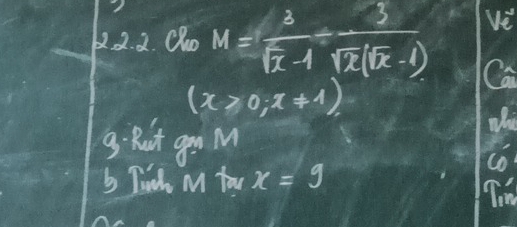 2.2.2. Cho M = 3/(√x - 1) - 3/(√x(√x - 1))
(x > 0; x ≠ 1)
a. Rút gọn M
b Tính M tại x = 9
Vẽ
Câ
nhi
có
Tín